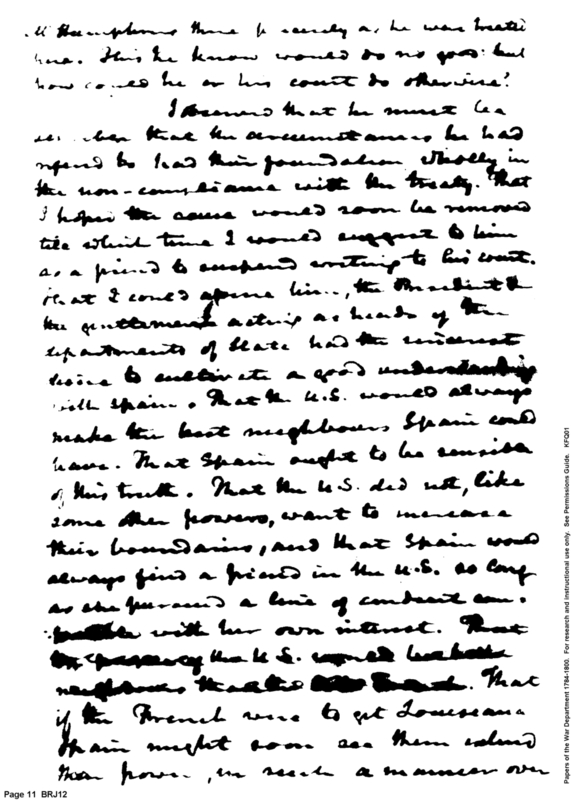 there precisely as he was treated
here. This he knew would do no good: but
how could he or his court do otherwise?
I observed that he must be
that the circumstances he had
to had their foundation wholly in
the non-compliance with the treaty. That
I hoped the cause would soon be removed
till which time I would suggest to him
as a friend to suspend writing to his court.
that I could assure him, the President &
the gentlemen acting as heads of the
departments of State had the sincerest
desire to cultivate a good understanding
with Spain. That the U.S. would always
make the best neighbours Spain could
have. That Spain ought to be sensible
of this truth. That the U.S. did not, like
some other powers, want to increase
their boundaries, and that Spain would
always find a friend in the U.S. so long
as she pursued a line of conduct com-
with her own interest. That
the U S. would be
neighbours than the French. That
if the French were to get Louisiana
Spain might soon see them extend
their power, in such a manner over
Page 11 BRJ12
Papers of the War Department 1784-1800. For research and instructional use only. See Permissions Guide. KFQ01